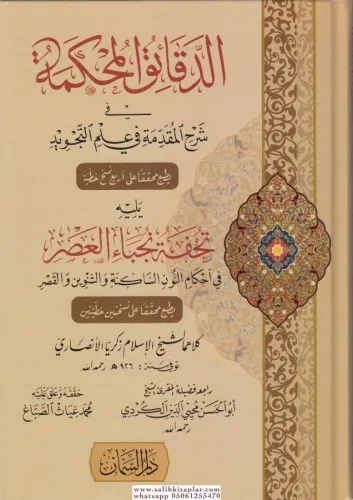 الدقائق المحكمة
في
شرح المقدمة في علم التجويد
يطبع محققا على أربع نسخ خطية
يليه
تحفة نجباء العصر
في أحكام النون الساكنة والتنوين والقصر
يطبع محققا على نسختين خطيتين
كلاهما لشيخ الإسلام زكريا الأنصاري
توفي سنة: ٩٢٦ هـ رحمه الله
راجعه فضيلة المقرئ الشيخ
أبو الحسن محيي الدين الكردي
رحمه الله
حققه وعلق عليه
محمد غياث الصباغ
دار السمان
www.salihkitaplar.com
whatsapp 05061253470